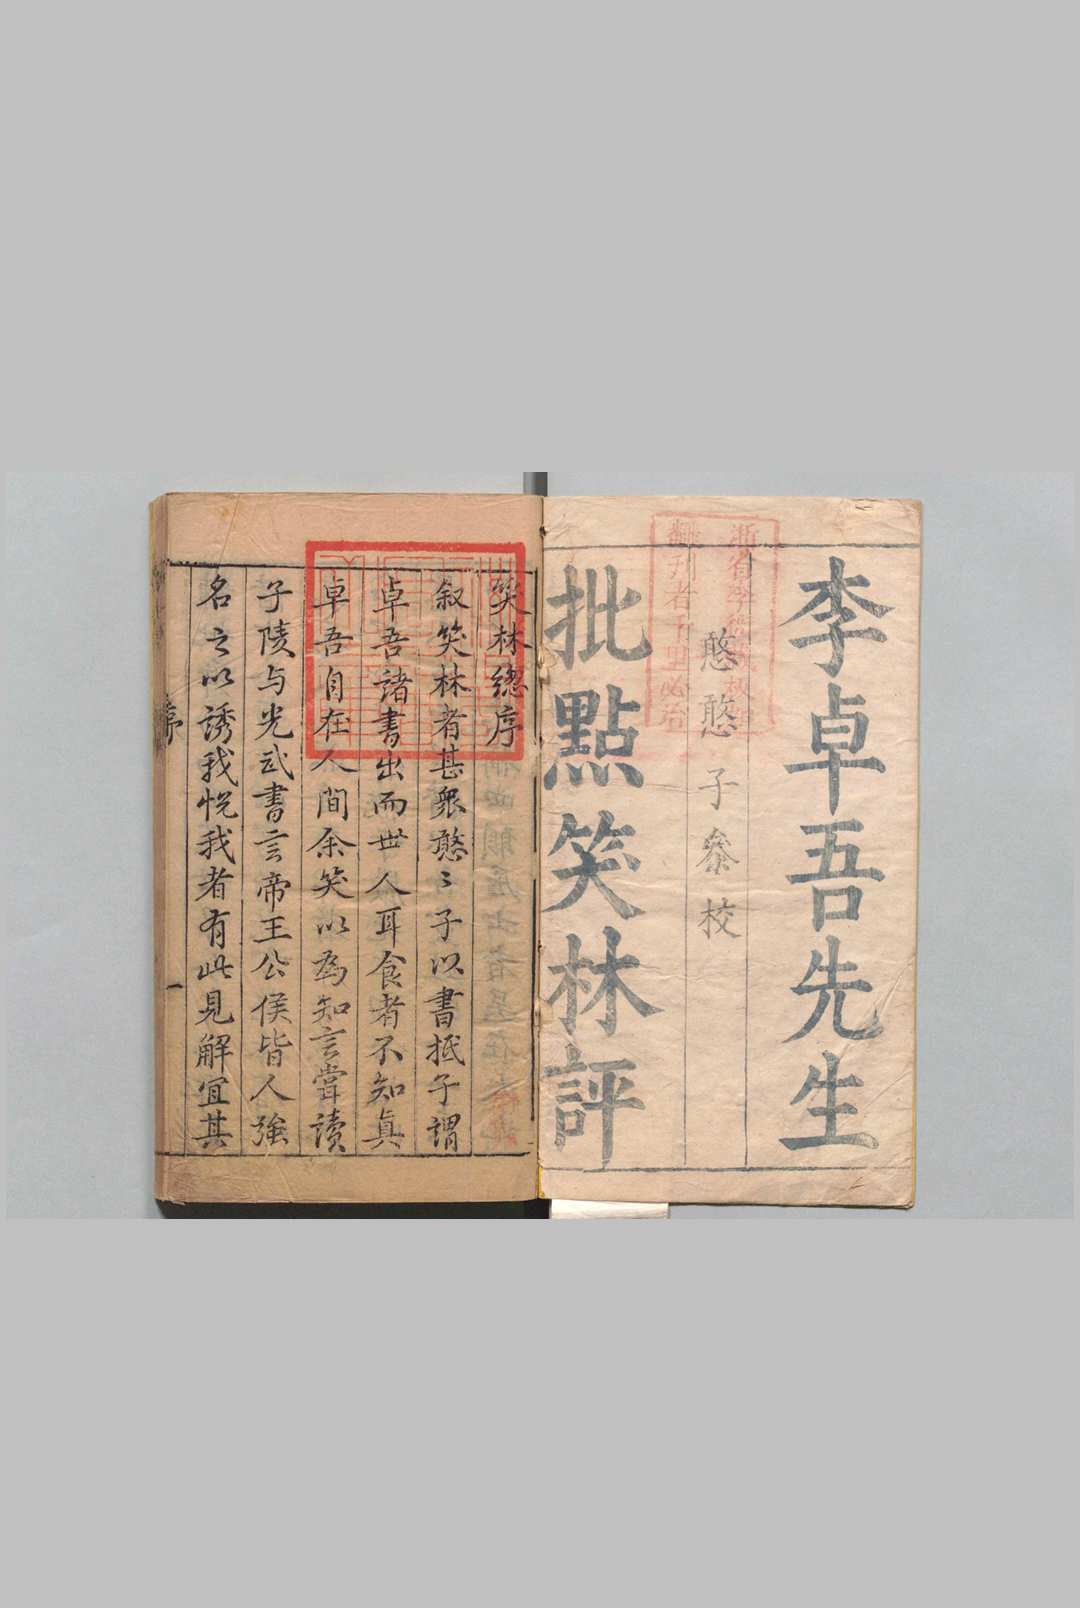 李卓吾先生
憨憨子叅校
批點笑林評
翻刋者千里必治
笑林總序
叙笑林者甚衆憨〻子以書抵予謂
卓吾諸書出而世人耳食者不知真
卓吾自在人間余笑以爲知言嘗讀
子陵与光武書言帝王公侯皆人強
名之以誘我悦我者有此見解宜其
序
一